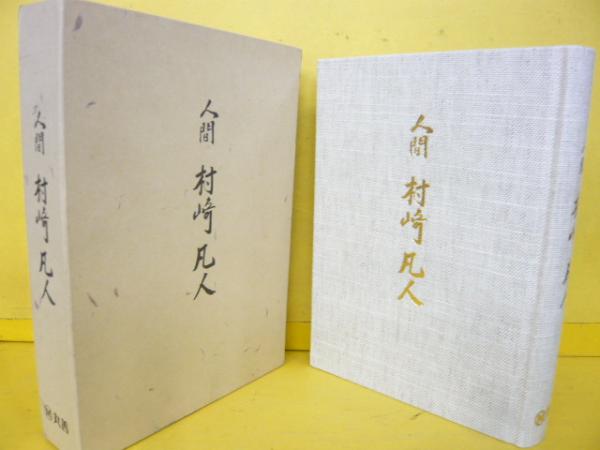 人間 村崎 凡人
丸善
人間 村崎 凡人
人間 村崎 凡人
人間 村崎 凡人